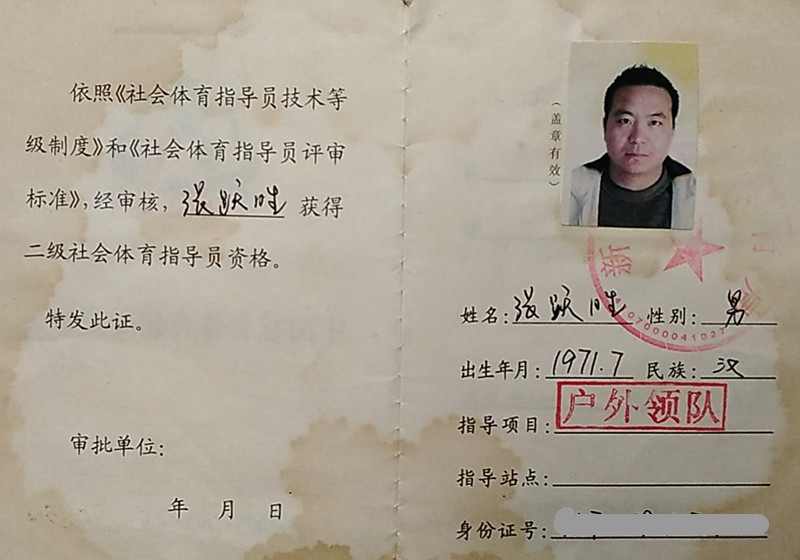 依照《社会体育指导员技术等
级制度》和《社会体育指导员评审
标准》,经审核, 张跃胜 获得
二级社会体育指导员资格。
特发此证。
审批单位:
年 月 日
(盖章有效)
新
4107000041027
姓名: 张跃胜 性别: 男
出生年月: 1971.7 民族: 汉
指导项目: 户外领队
指导站点:
身份证号: